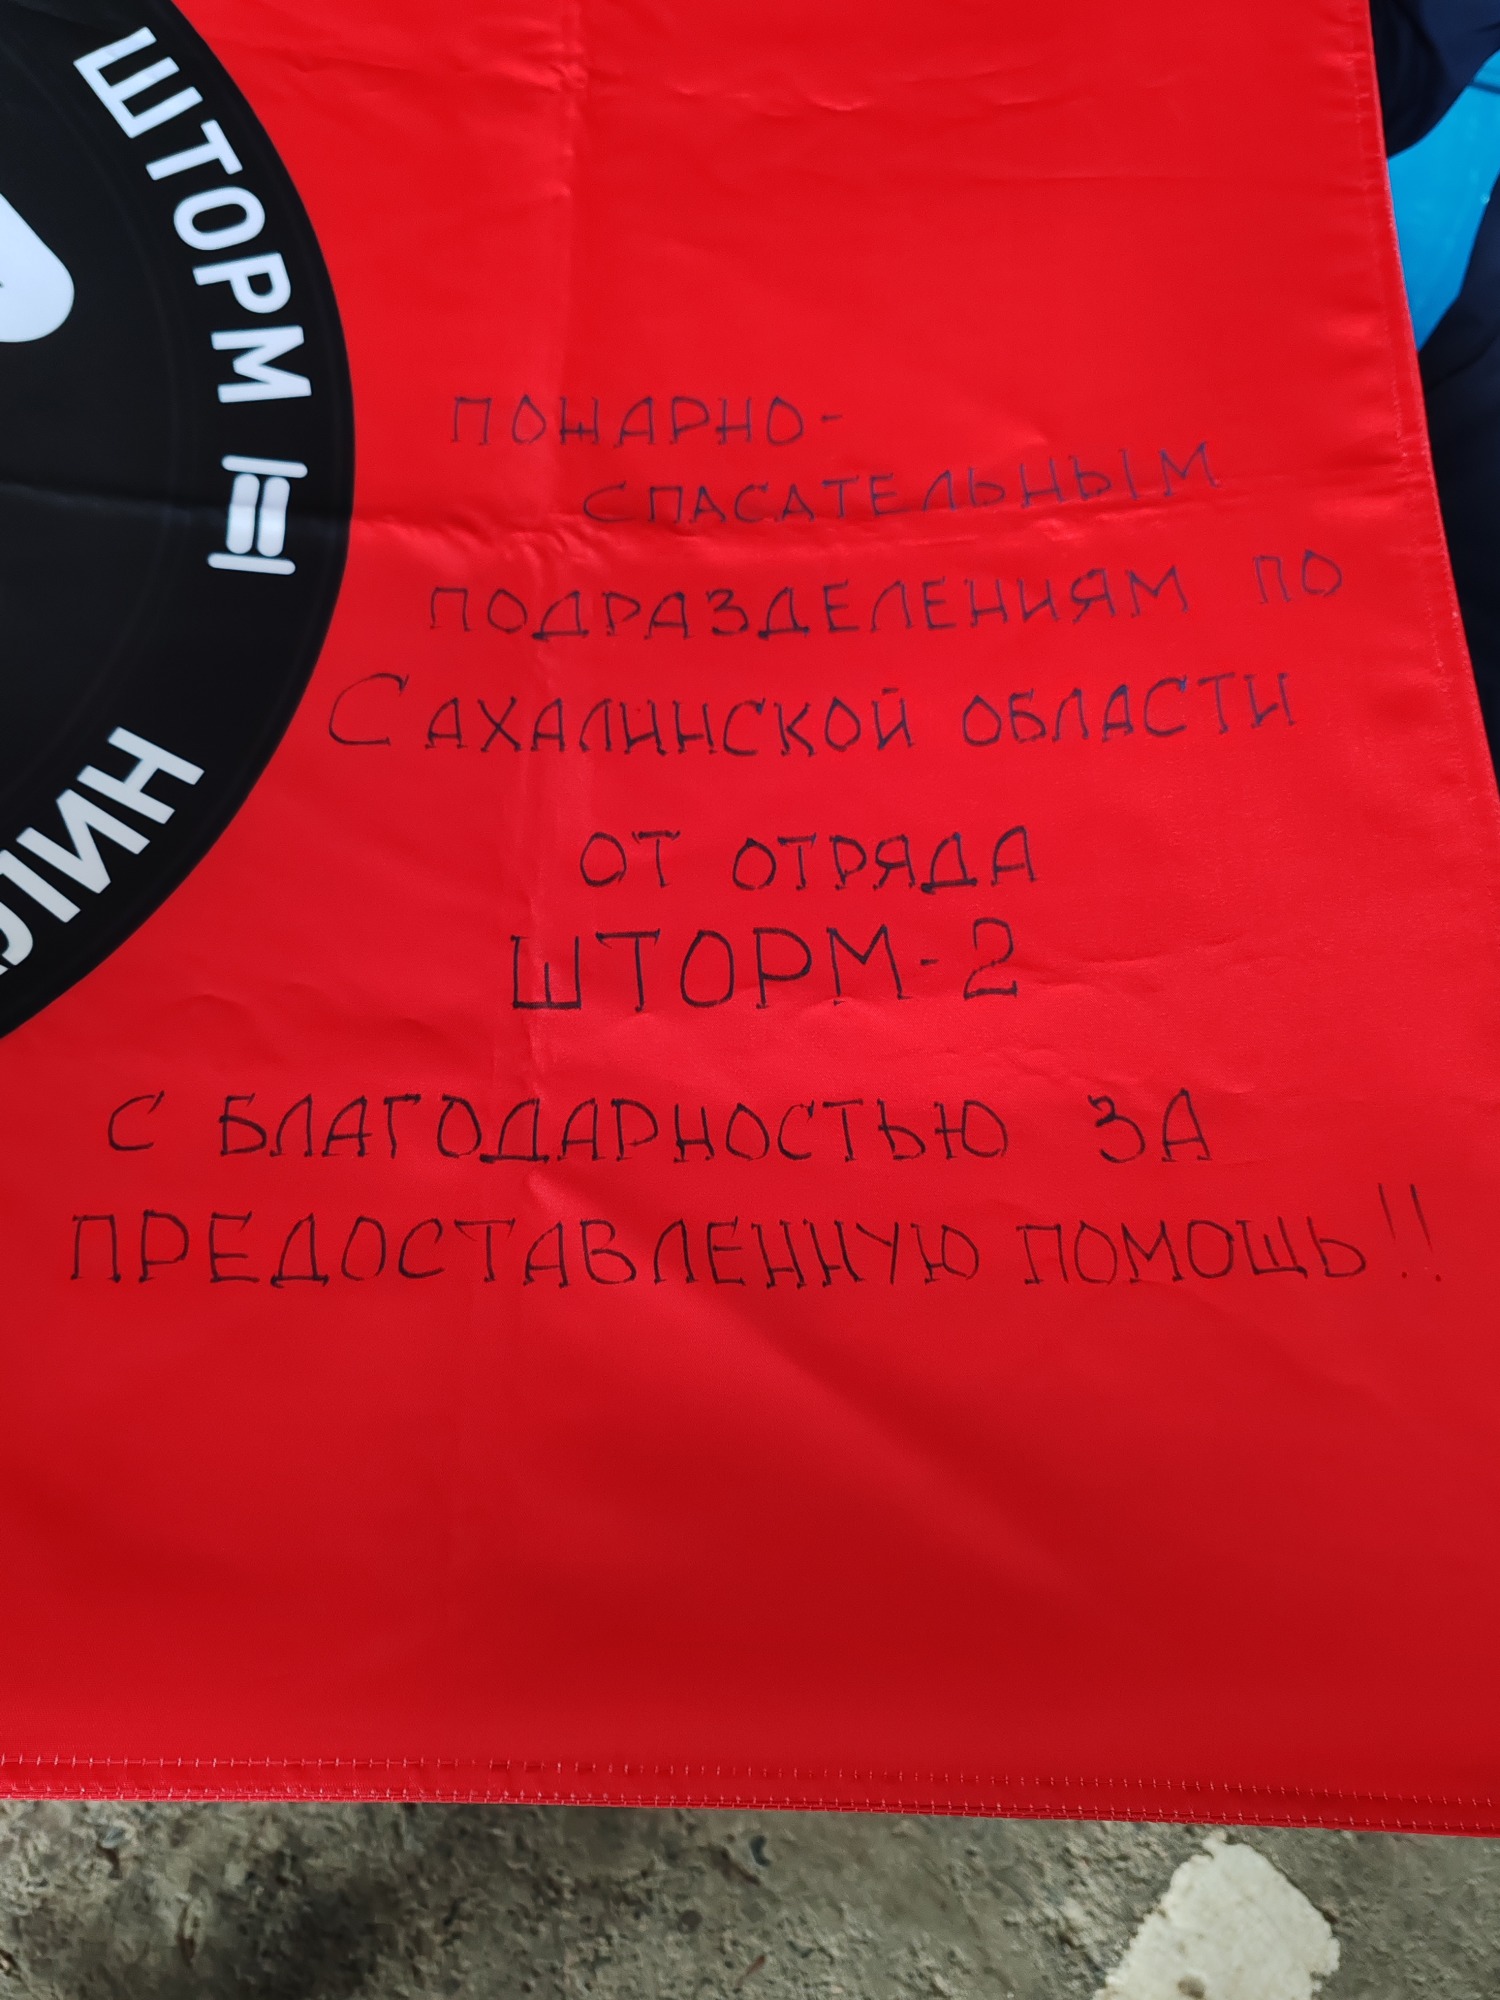 ШТОРМ II
ПОЖАРНО-
СПАСАТЕЛЬНЫМ
ПОДРАЗДЕЛЕНИЯМ ПО
САХАЛИНСКОЙ ОБЛАСТИ
ОТ ОТРЯДА
ШТОРМ-2
С БЛАГОДАРНОСТЬЮ ЗА
ПРЕДОСТАВЛЕННУЮ ПОМОЩЬ!!